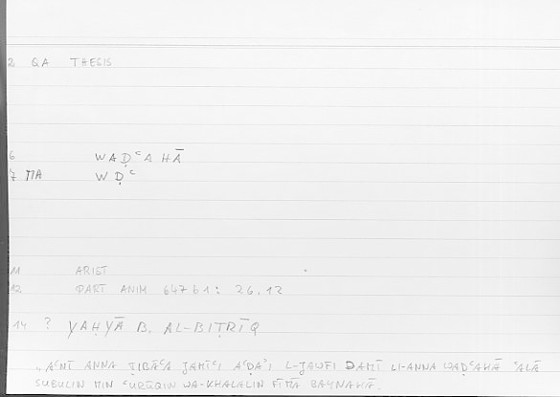 2 QA THESIS
6 WAḌʿAHĀ
7 ΠΑ WḌʿ
11 ARIST
12 PART ANIM 647 b1: 26.12
14 ? YAḤYĀ B. AL-BIṬRĪQ
"AʿNĪ ANNA ṬIBĀʿA JAMĪʿI AʿḌĀʾI L-JAWFI DAMĪ LI-ANNA WAḌʿAHĀ ʿALĀ
SUBULIN MIN ʿURŪQIN WA-KHALALIN FĪMĀ BAYNAHĀ.